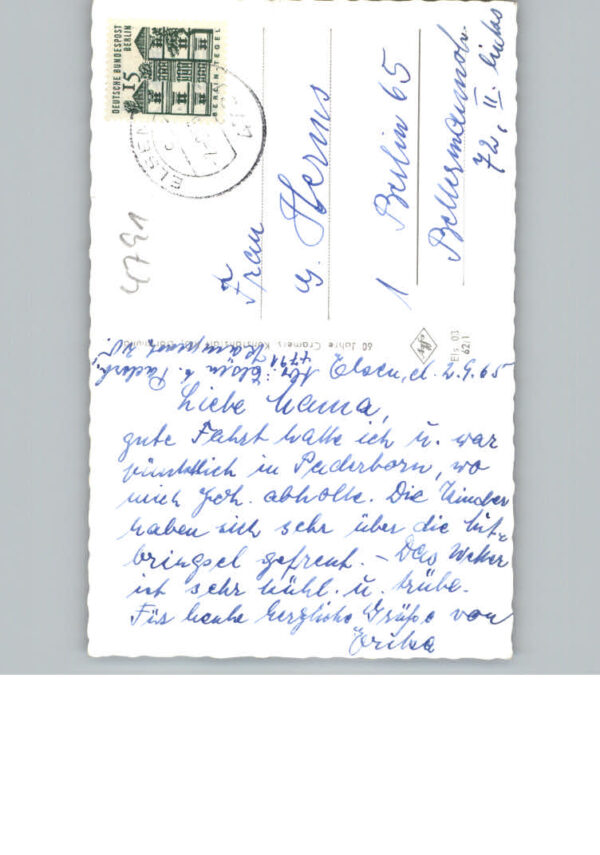 DEUTSCHE BUNDESPOST
BERLIN
15
BERLIN-TEGEL
ELSEN
4791
Frau
g. Herms
1 Berlin 65
Bellermannstr.
72, II. links
60 Jahre Cramers Kunstanstalt KG, Dortmund
Els. 03
62.1
Elsen b. Paderb.
Elsen, d. 2.9.65
Liebe Mama,
gute Fahrt hatte ich u. war
pünktlich in Paderborn, wo
mich Joh. abholte. Die Kinder
haben sich sehr über die Mit-
bringsel gefreut. – Das Wetter
ist sehr kühl u. trübe.
Für heute herzliche Grüße von
Erika